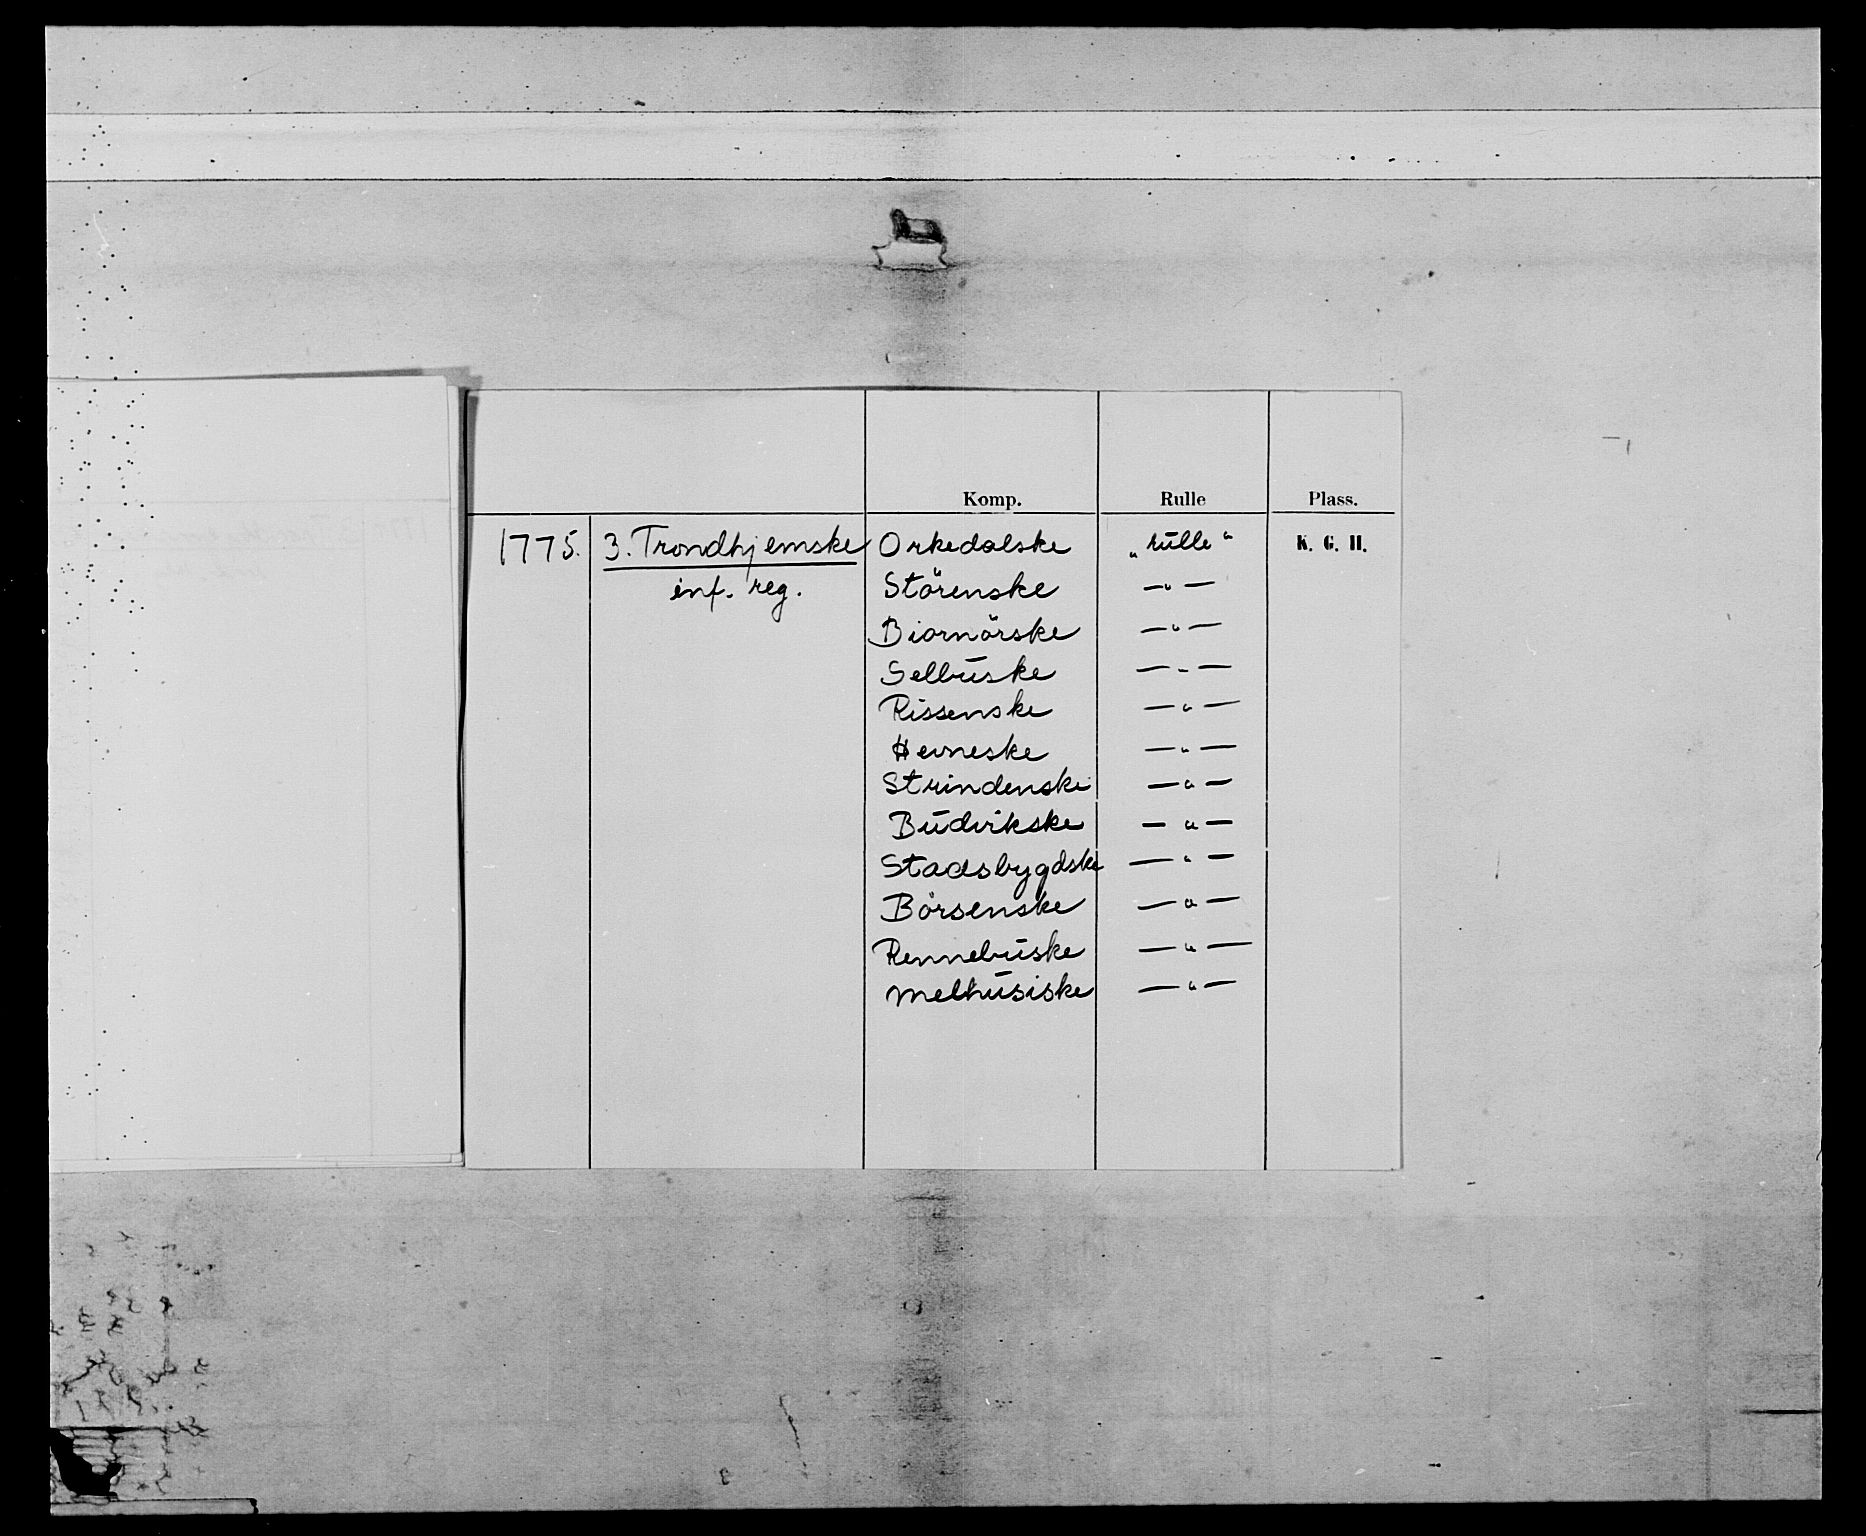 Komp. Rulle Plass.
1775. 3. Trondhjemske Orkedalske „rülle“ K. G. H.
inf. reg. Störenske —„—
Biornörske —„—
Selbūske —„—
Rissenske —„—
Hevneske —„—
Strindenske —„—
Būdvikske —„—
Stadsbygdske —„—
Börsenske —„—
Rennebūske —„—
Melhūsiske —„—